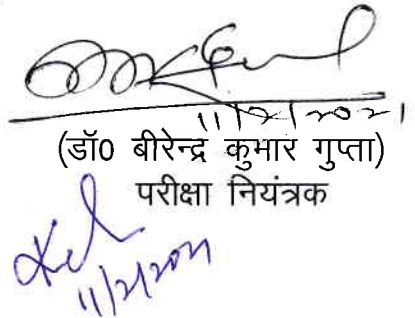 11/2/2021
(डॉ0 बीरेन्द्र कुमार गुप्ता)
परीक्षा नियंत्रक
11/2/2021